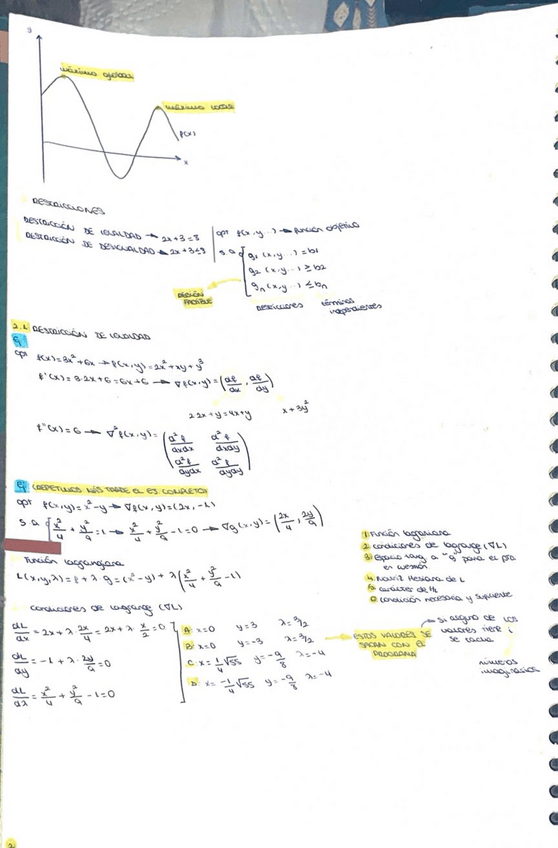 y
máximo global
máximo local
f(x)
x
RESTRICCIONES
RESTRICCIÓN DE IGUALDAD → 2x+3=3
RESTRICCIÓN DE DESIGUALDAD → 2x+3≤3
opt f(x,y...) → función objetivo
s.a. g₁(x,y...)=b₁
g₂(x,y...)≥b₂
gₙ(x,y...)≤bₙ
REGIÓN FACTIBLE
restricciones
términos independientes
2.1. RESTRICCIÓN DE IGUALDAD
Ej
opt f(x)=3x²+6x → f(x,y)=2x²+xy+y³
f'(x)=3·2x+6=6x+6 → ∇f(x,y)=(df/dx, df/dy)
2·2x+y=4x+y
x+3y²
f''(x)=6 → ∇²f(x,y)=
d²f/dxdx d²f/dxdy
d²f/dydx d²f/dydy
Ej (REPETIMOS MÁS TARDE EL EJ. COMPLETO)
opt f(x,y)=x²-y → ∇f(x,y)=(2x,-1)
s.a. x²/4+y²/9=1 → x²/4+y²/9-1=0 → ∇g(x,y)=(2x/4, 2y/9)
Función lagrangiana
L(x,y,λ)=f+λ·g=(x²-y)+λ(x²/4+y²/9-1)
1. Función lagrangiana
2. condiciones de lagrange (∇L)
3. Espacio tang. a "g" para el pto en cuestión
4. Matriz Hessiana de L
5. carácter de H
6. condición necesaria y suficiente
condiciones de lagrange (∇L)
dL/dx=2x+λ·2x/4=2x+λ·x/2=0
dL/dy=-1+λ·2y/9=0
dL/dλ=x²/4+y²/9-1=0
A: x=0 y=3 λ=3/2
B: x=0 y=-3 λ=3/2
C: x=1/4√55 y=-9/8 λ=-4
D: x=-1/4√55 y=-9/8 λ=-4
ESTOS VALORES SE SACAN CON EL PROGRAMA
si alguno de los valores tiene i se tacha
números imaginarios
2